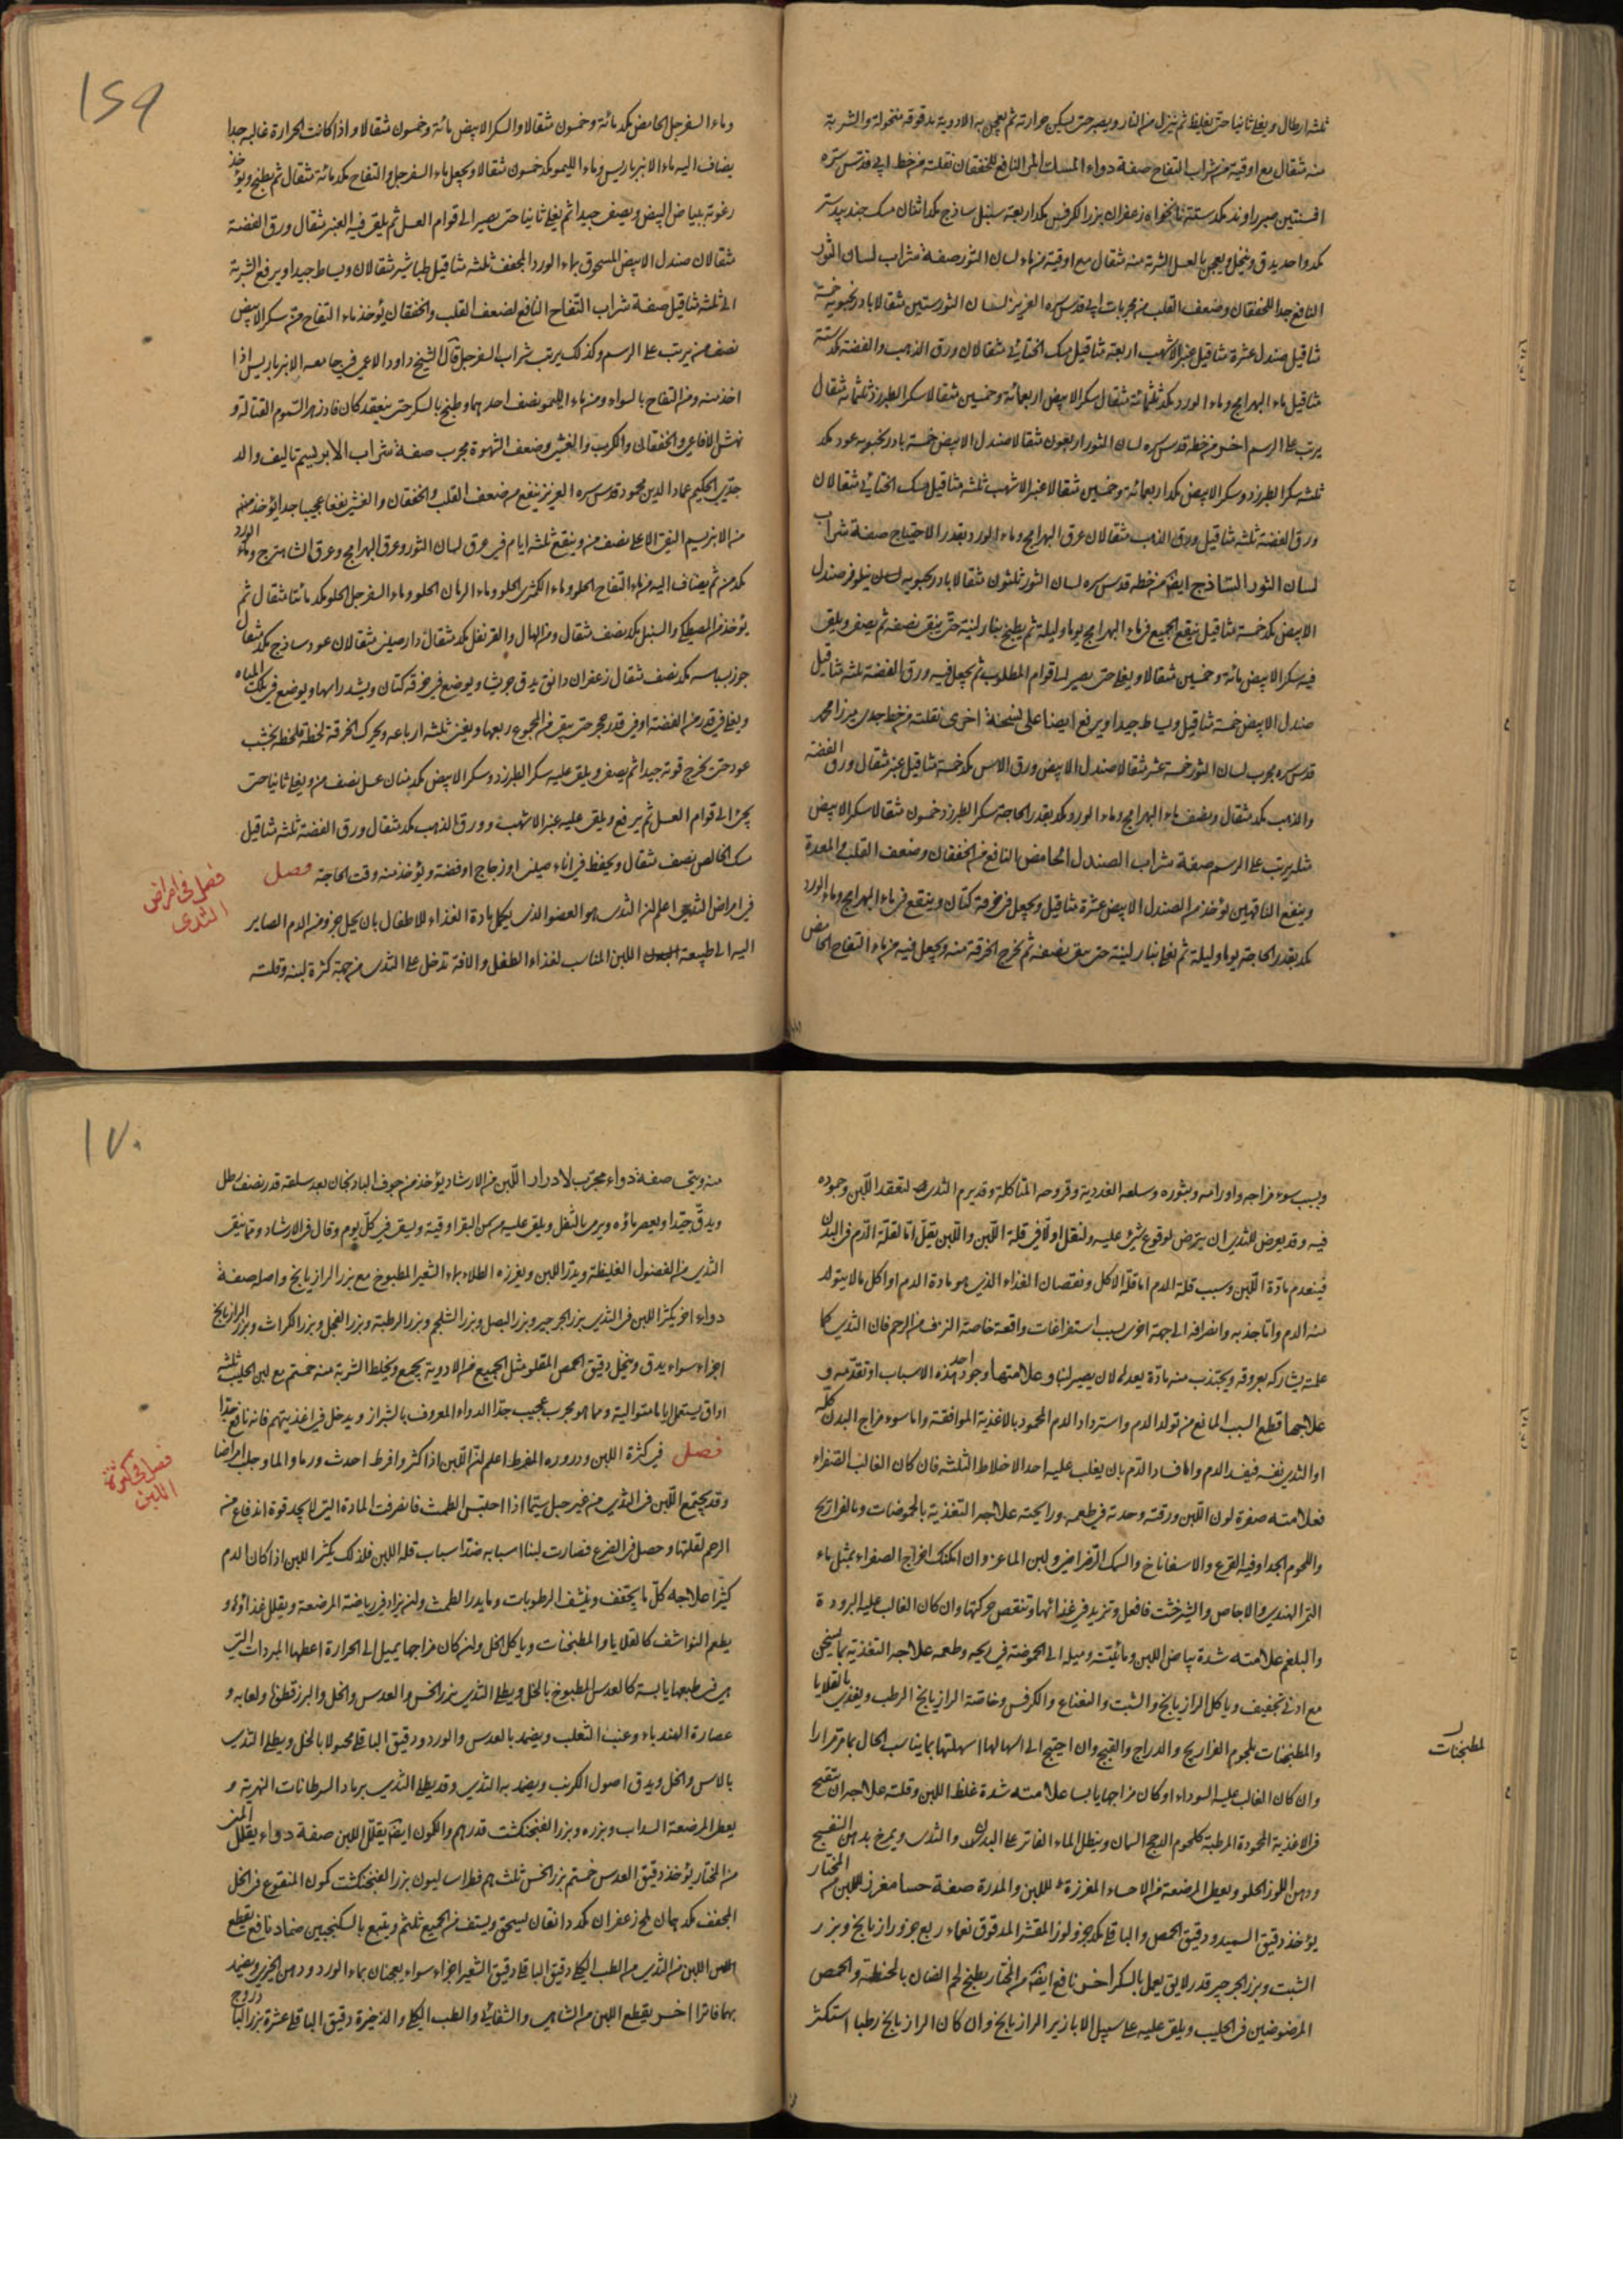 ثلثه ارطال ويغلى ثانيا حتى يغلظ ثم ينزل من النار ويصبر حتى يسكن حرارته ثم يعجن به الادوية مدقوقه منخولة والشربة
منه مثقال مع اوقية من شراب التفاح صفة دواء المسك المر النافع للخفقان نقلت من خط ابى قدس سره
افسنتين صبر راوند مكد ستة نانخواه زعفران بزر الكرفس مكد اربعة سنبل ساذج مكد اثنان مسك جندبيدستر
مكد واحد يدق وينخل ويعجن بالعسل الشربة منه مثقال مع اوقية من ماء لسان الثور صفة شراب لسان الثور
النافع جدا للخفقان وضعف القلب من مجربات ابى قدس سره العزيز لسان الثور ستين مثقالا بادرنجبويه خمسة
مثاقيل صندل عشرة مثاقيل عنبر الاشهب اربعة مثاقيل مسك الختائى مثقالان ورق الذهب والفضة مكد ستة
مثاقيل ماء البهرامج وماء الورد مكد ثلثمائة مثقال سكر الابيض اربعمائة وخمسين مثقالا سكر الطبرزد ثلثمائه مثقال
يرتب على الرسم اخرى من خطه قدس سره لسان الثور اربعون مثقالا صندل الابيض خمسة بادرنجبويه عود مكد
ثلثه سكر الطبرزد وسكر الابيض مكد اربعمائة وخمسين مثقالا عنبر الاشهب ثلثه مثاقيل مسك الختائى مثقالان
ورق الفضة ثلثه مثاقيل ورق الذهب مثقالان عرق البهرامج وماء الورد بقدر الاحتياج صفة شراب
لسان الثور الساذج ايضا من خطه قدس سره لسان الثور ثلثون مثقالا بادرنجبويه لسان نيلوفر صندل
الابيض مكد خمسة مثاقيل ينقع الجميع فى ماء البهرامج يوما وليلة ثم يطبخ بنار لينة حتى يبقى نصفه ثم يصفى ويلقى
فيه سكر الابيض مائة وخمسين مثقالا ويغلى حتى يصير الى قوام المطلوب ثم يجعل فيه ورق الفضة ثلثه مثاقيل
صندل الابيض خمسة مثاقيل ويساط جيدا ويرفع ايضا على نسخة اخرى نقلته من خط جدى ميرزا محمد
قدس سره مجرب لسان الثور خمسة عشر مثقالا صندل الابيض ورق الاس مكد خمسة مثاقيل عنبر مثقال ورق الفضة
والذهب مكد مثقال ونصف ماء البهرامج وماء الورد مكد بقدر الحاجة سكر الطبرزد خمسون مثقالا سكر الابيض
مثله يرتب على الرسم صفة شراب الصندل الحامض النافع من الخفقان وضعف القلب والمعدة
وينفع الناقهين يؤخذ من الصندل الابيض عشرة مثاقيل ويجعل فى خرقة كتان وينقع فى ماء البهرامج وماء الورد
مكد بقدر الحاجة يوما وليلة ثم يغلى بنار لينة حتى يبقى نصفه ثم يخرج الخرقة منه ويجعل فيه من ماء التفاح الحامض
١٦٩
وماء السفرجل الحامض مكد مائة وخمسون مثقالا والسكر الابيض مائة وخمسون مثقالا واذا كانت الحرارة غالبه جدا
يضاف اليه ماء الانبرباريس وماء الليمو مكد خمسون مثقالا ويجعل ماء السفرجل والتفاح مكد مائة مثقال ثم يطبخ ويؤخذ
رغوته ببياض البيض ويصفى جيدا ثم يغلى ثانيا حتى يصير الى قوام العسل ثم يلقى فيه العنبر مثقال ورق الفضة
مثقالان صندل الابيض المسحوق بماء الورد المجفف ثلثه مثاقيل طباشير مثقالان ويساط جيدا ويرفع الشربة
الى ثلثه مثاقيل صفة شراب التفاح النافع لضعف القلب والخفقان يؤخذ ماء التفاح من سكر الابيض
نصف من يرتب على الرسم وكذلك يرتب شراب السفرجل قال الشيخ داود الاعمى فى جامعه الانبرباريس اذا
اخذ منه ومن التفاح بالسواء ومن ماء الليمو نصف احدهما وطبخ بالسكر حتى ينعقد كان فادزهر السموم القتالة و
نهش الافاعى والخفقان والكرب والغشى وضعف الشهوة مجرب صفة شراب الابريسم تاليف والد
جدى الحكيم عماد الدين محمود قدس سره العزيز ينفع من ضعف القلب والخفقان والغشى نفعا عجيبا جدا يؤخذ منه
من الابريسم النقى الاعلى نصف من وينقع ثلثه ايام فى عرق لسان الثور وعرق البهرامج وعرق الشاهترج وماء الورد
مكد من ثم يضاف اليه من ماء التفاح الحلو وماء الكمثرى الحلو وماء الرمان الحلو وماء السفرجل الحلو مكد مائتا مثقال ثم
يؤخذ من المصطكى والسنبل مكد نصف مثقال ومن الهال والقرنفل مكد مثقال دارصينى مثقالان عود ساذج مكد مثقال
جوز بسباسه مكد نصف مثقال زعفران دانق يدق جريشا ويوضع فى خرقة كتان ويشد راسها ويوضع فى تلك المياه
ويغلى فى قدر من الفضة او فى قدر حجر حتى يبقى من المجموع ربعها ويفنى ثلثه ارباعه ويحرك الخرقة لحظة فلحظة بخشب
عود حتى يخرج قوته جيدا ثم يصفى ويلقى عليه سكر الطبرزد وسكر الابيض مكد منان عسل نصف من ويغلى ثانيا حتى
يجئ الى قوام العسل ثم يرفع ويلقى عليه عنبر الاشهب وورق الذهب مكد مثقال ورق الفضة ثلثه مثاقيل
مسك الخالص نصف مثقال ويحفظ فى اناء صينى او زجاج او فضة ويؤخذ منه وقت الحاجة فصل
فصل فى امراض
الثدى
فى امراض الثدى اعلم ان الثدى هو العضو الذى يحيل مادة الغذاء للاطفال بان يحيل جزو من الدم الصاير
اليه الى طبيعة اللبن المناسب لغذاء الطفل والافة تدخل على الثدى من جهة كثرة لبنه وقلته
وبسبب سوء مزاجه واورامه وبثوره وسلعه الغددية وقروحه المتاكلة وقد يرم الثدى لتعقد اللبن وجموده
فيه وقد يعرض للثدى ان يترض لوقوع شئ عليه ولنقل اولا فى قلة اللبن واللبن يقل اما لقلة الدم فى البدن
فينعدم مادة اللبن وسبب قلة الدم اما قلة الاكل ونقصان الغذاء الذى هو مادة الدم او اكل ما لا يتولد
منه الدم واما جذبه وانصرافه الى جهة اخرى بسبب استفراغات واقعة خاصة النزف من الرحم فان الثدى كما
علمته يشاركه بعروقه ويجتذب منه مادة يعدله لان يصير لبنا وعلامتها وجود احد هذه الاسباب او تقدمه و
علاجها قطع السبب المانع من تولد الدم واسترداد الدم المحمود بالاغذية الموافقة واما سوء مزاج البدن كله
او الثدى نفسه فيفسد الدم واما فساد الدم بان يغلب عليه احد الاخلاط الثلثه فان كان الغالب الصفراء
فعلامته صفرة لون اللبن ورقته وحدته فى طعمه ورايحته علاجه التغذية بالحموضات وبالفراريج
واللحوم الجدا وفيه القرع والاسفاناخ والسمك الرضراضى ولبن الماعز وان امكنك اخراج الصفراء بمثل ماء
التمر الهندى والاجاص والشيرخشت فافعل وتزيد فى غذائها وتنقص حركتها وان كان الغالب عليه البرودة
والبلغم علامته شدة بياض اللبن ومائيته وميله الى الحموضة فى ريحه وطعمه علاجه التغذية بما يسخن
مع ادنى تجفيف وياكل الرازيانج والشبت والنعناع والكرفس وخاصة الرازيانج الرطب ويغذى بالقلايا
والمطبخنات بلحوم الفراريج والدراج والقبج وان احتيج الى اسهالها اسهلتها بما يناسب الحال بما مر مرارا
مطبخنات
وان كان الغالب عليه السوداء او كان مزاجها يابسا علامته شدة غلظ اللبن وقلته علاجه ان تنقيح
من الاغذية المحمودة المرطبة كلحوم الدجج السمان وينطل الماء الفاتر على البدن والثدى ويمرخ بدهن البنفسج
ودهن اللوز الحلو ويعطى المرضعة من الاحساء المغزرة للبن والمدرة صفة حسا مغزر للبن من المختار
يؤخذ دقيق السميد ودقيق الحمص والباقلى مكد جزو لوز المقشر المدقوق نعماء ربع جزو رازيانج وبزر
الشبت وبزر الجرجير قدر لايق يعمل بالسكر اخرى نافع ايضا من المختار يطبخ لحم الضان بالحنطة والحمص
المرضوضين فى الحليب ويلقى عليه على سبيل الابازير الرازيانج وان كان الرازيانج رطبا استكثر
١٧٠
منه ويتحى صفة دواء مجرب لادرار اللبن من الارشاد يؤخذ من جوف الباذنجان بعد سلقه قدر نصف رطل
ويدق جيدا ويعصر ماؤه ويرمى بالثفل ويلقى عليه من سمن البقر اوقية ويسقى فى كل يوم وقال فى الارشاد ومما ينقى
الثدى من الفضول الغليظة ويدر اللبن ويغزره الطلاء بماء الشعير المطبوخ مع بزر الرازيانج واصله صفة
دواء اخر يكثر اللبن فى الثدى بزر الجرجير وبزر البصل وبزر الشلجم وبزر الرطبة وبزر الفجل وبزر الكراث وبزر الرازيانج
اجزاء سواء يدق وينخل دقيق الحمص المقلو مثل الجميع من الادوية يجمع ويخلط الشربة منه خمسة دراهم مع لبن الحليب ثلثه
اواق يستعمل اياما متوالية ومما هو مجرب عجيب جدا الدواء المعروف بالشيراز ويدخل فى اغذيتهم فانه نافع جدا
فصل فى كثرة اللبن ودروره المفرط اعلم ان اللبن اذا كثر وافرط احدث ورما والما وجلب امراضا
فصل فى كثرة
اللبن
وقد يجتمع اللبن فى الثدى من غير حبل سيما اذا احتبس الطمث فانصرفت المادة التى لا يجد قوة اندفاع من
الرحم لقلتها وحصل فى الضرع فصارت لبنا اسبابه ضد اسباب قلة اللبن فلذلك يكثر اللبن اذا كان الدم
كثيرا علاجه كل ما يجفف وينشف الرطوبات وما يدر الطمث وان يزاد فى رياضة المرضعة ويقلل غذاؤه و
يطعم النواشف كالقلايا والمطبخنات وياكل الخل وان كان مزاجها يميل الى الحرارة اعطها المبردات التى
هى فى طبعها يابسة كالعدس المطبوخ بالخل ويطلى الثدى ببزر الخس والعدس والخل والبزرقطونا ولعابه و
عصارة الهندباء وعنب الثعلب ويضمد بالعدس والورد ودقيق الباقلى محلولا بالخل ويطلى الثدى
بالاس والخل ويدق اصول الكرنب ويضمد به الثدى وقد يطلى الثدى برماد السرطانات النهرية و
يعطى المرضعة السداب وبزره وبزر الفنجنكشت قدر درهم والكمون ايضا يقلل اللبن صفة دواء يقلل المنى
من المختار يؤخذ دقيق العدس خمسة دراهم بزر الخس ثلثه دراهم فطراساليون بزر الفنجنكشت كمون المنقوع فى الخل
المجفف مكد درهمان ملح زعفران مكد دانقان يسحق ويستف من الجميع ثلثه دراهم ويتبع بالسكنجبين ضماد نافع يقطع
اللبن من الثدى من الطب الكلى دقيق الباقلى دقيق الشعير اجزاء سواء يعجنان بماء الورد ودهن الخيرى ويضمد
بهما فاترا اخرى يقطع اللبن من الشاهى والشفائى والطب الكلى والذخيرة دقيق الباقلى عشرة بزر الباذروج